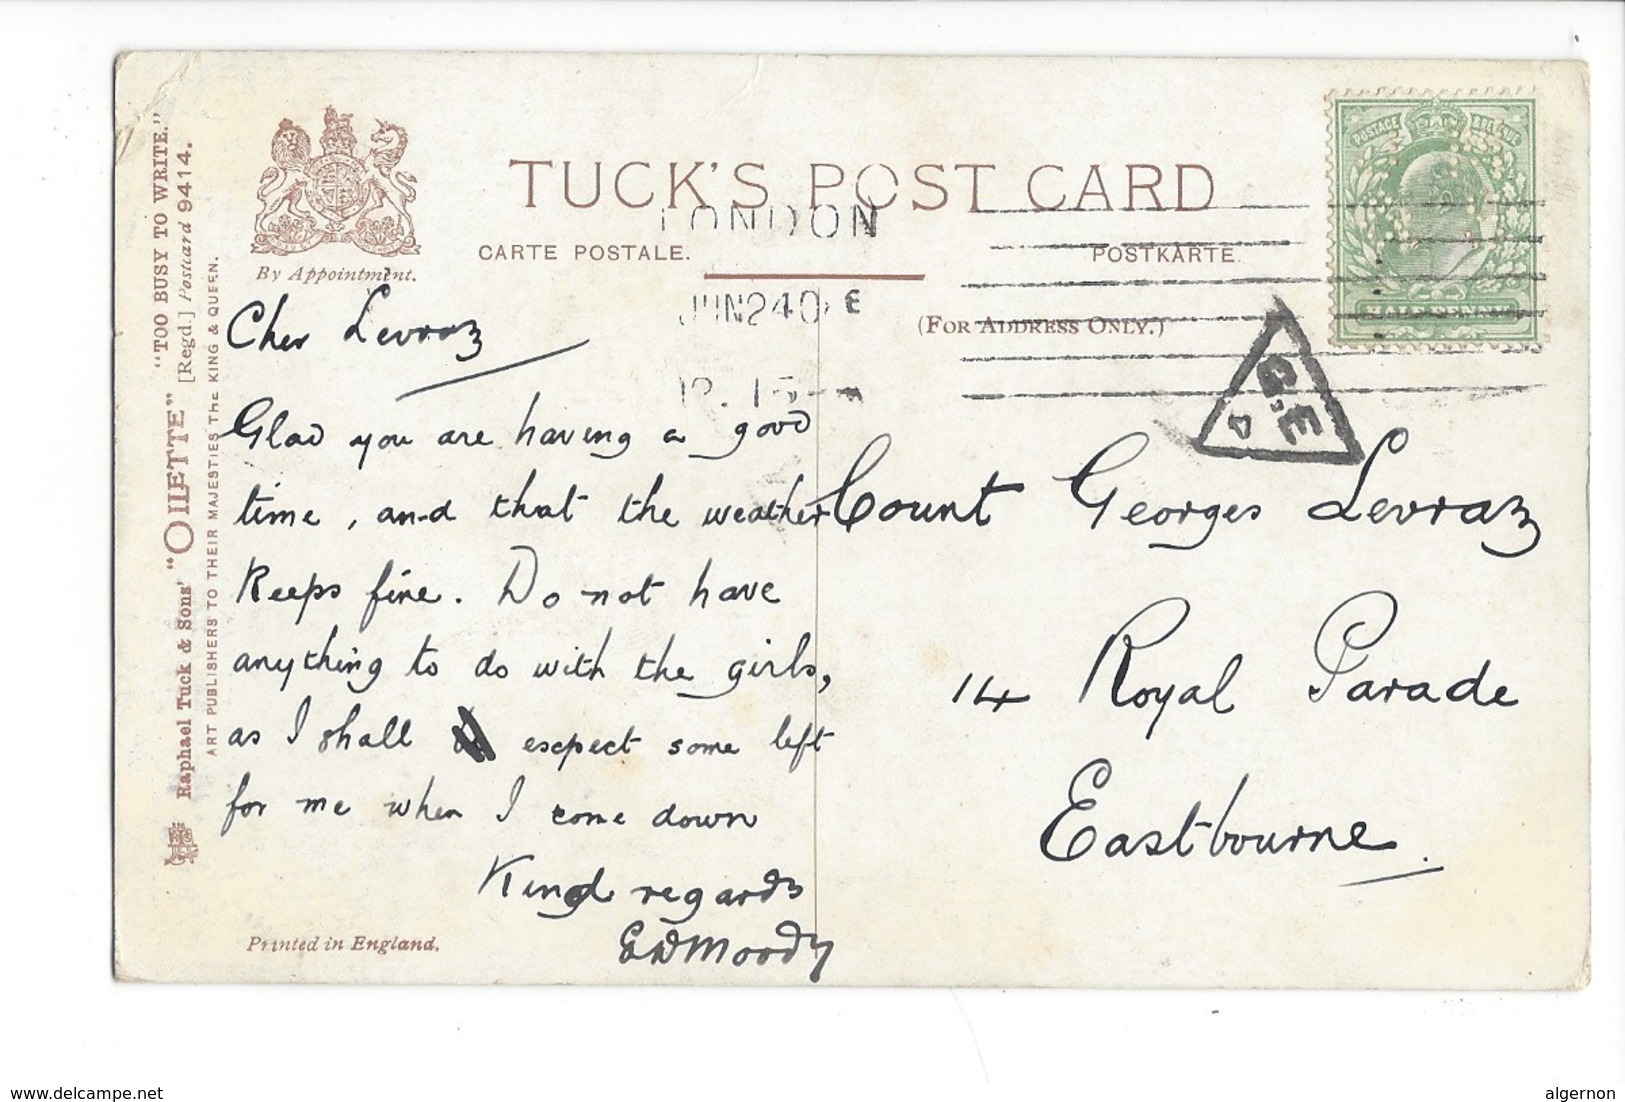 "TOO BUSY TO WRITE."
Raphael Tuck & Sons' "OILETTE" [Regd.] Postcard 9414.
ART PUBLISHERS TO THEIR MAJESTIES THE KING & QUEEN.
By Appointment.
TUCK'S POST CARD
CARTE POSTALE.
POSTKARTE.
(FOR ADDRESS ONLY.)
LONDON
JUN 24 0 E
12.15
POSTAGE REVENUE
HALFPENNY
G.E
4
Cher Levraz
Glad you are having a good
time, and that the weather
Keeps fine. Do not have
anything to do with the girls,
as I shall expect some left
for me when I come down
Kind regards
EWMoody
Count Georges Levraz
14 Royal Parade
Eastbourne.
Printed in England.
www.delcampe.net
algernon